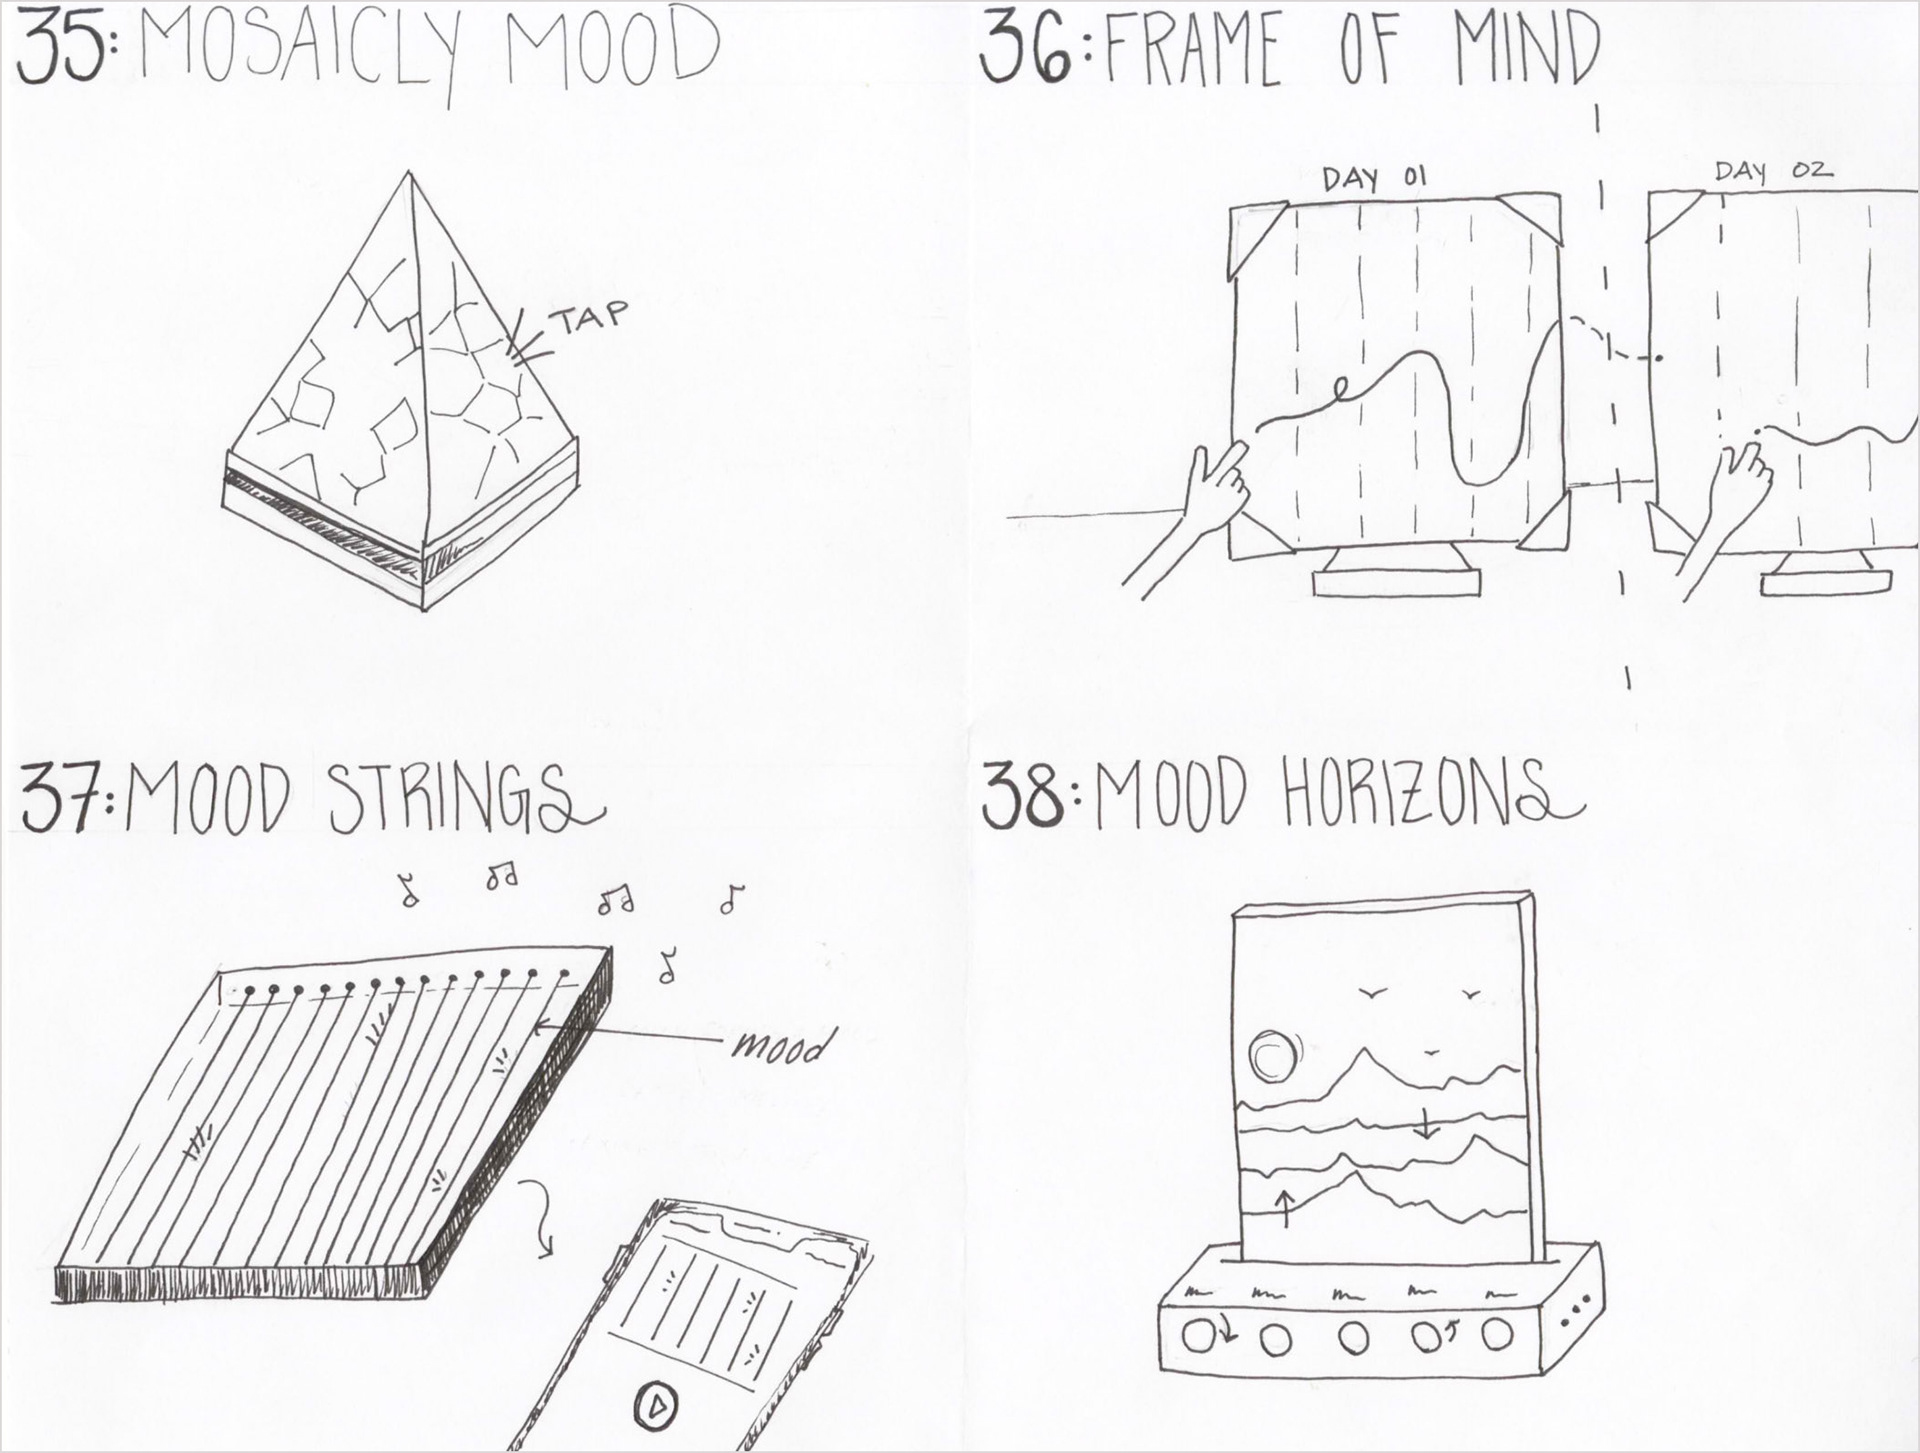 35: MOSAICLY MOOD
TAP
36: FRAME OF MIND
DAY 01
DAY 02
37: MOOD STRINGS
mood
38: MOOD HORIZONS